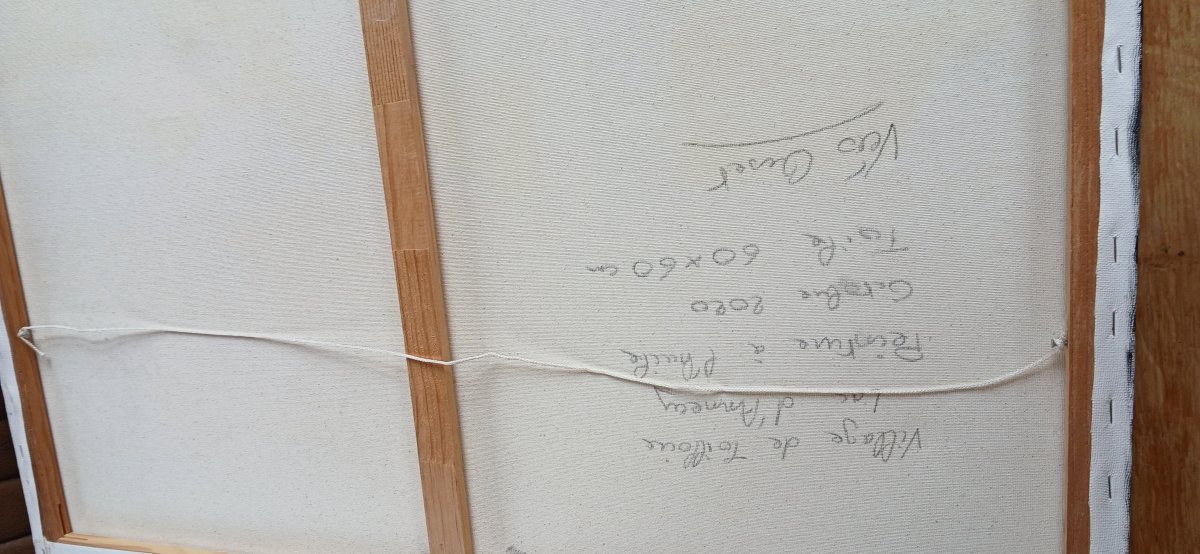 Village de Talloire
Lac d'Annecy
Peinture à l'huile
Octobre 2020
Toile 60 x 60 cm
Véro